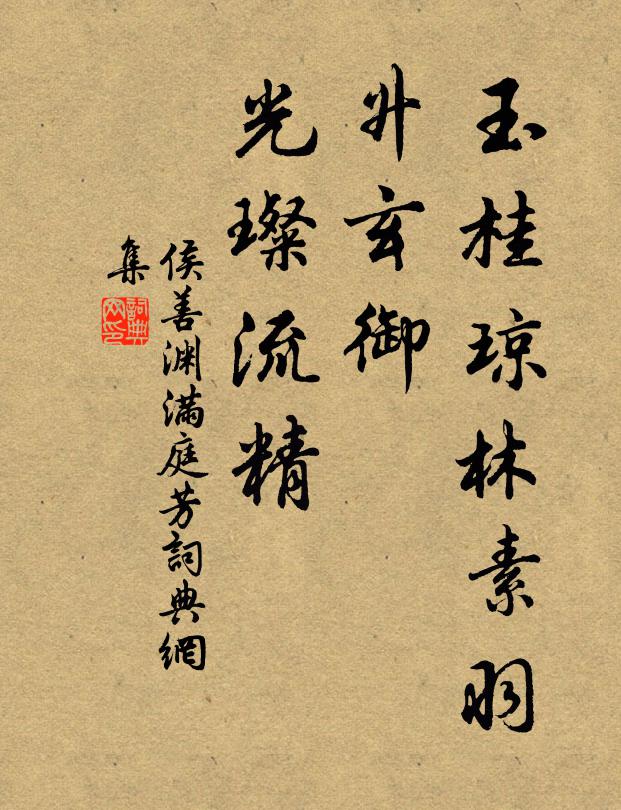 玉桂琼林素羽
升玄御
光璨流精
侯善渊满庭芳詞典網
集
詞典
网印